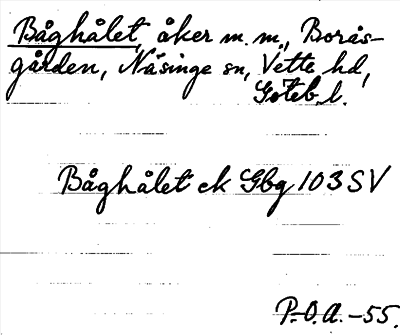 Båghålet, åker m.m., Borås-
gården, Näsinge sn, Vette hd,
Göteb. l.
Båghålet ek Gbg 103 SV
P.O.A. -55.